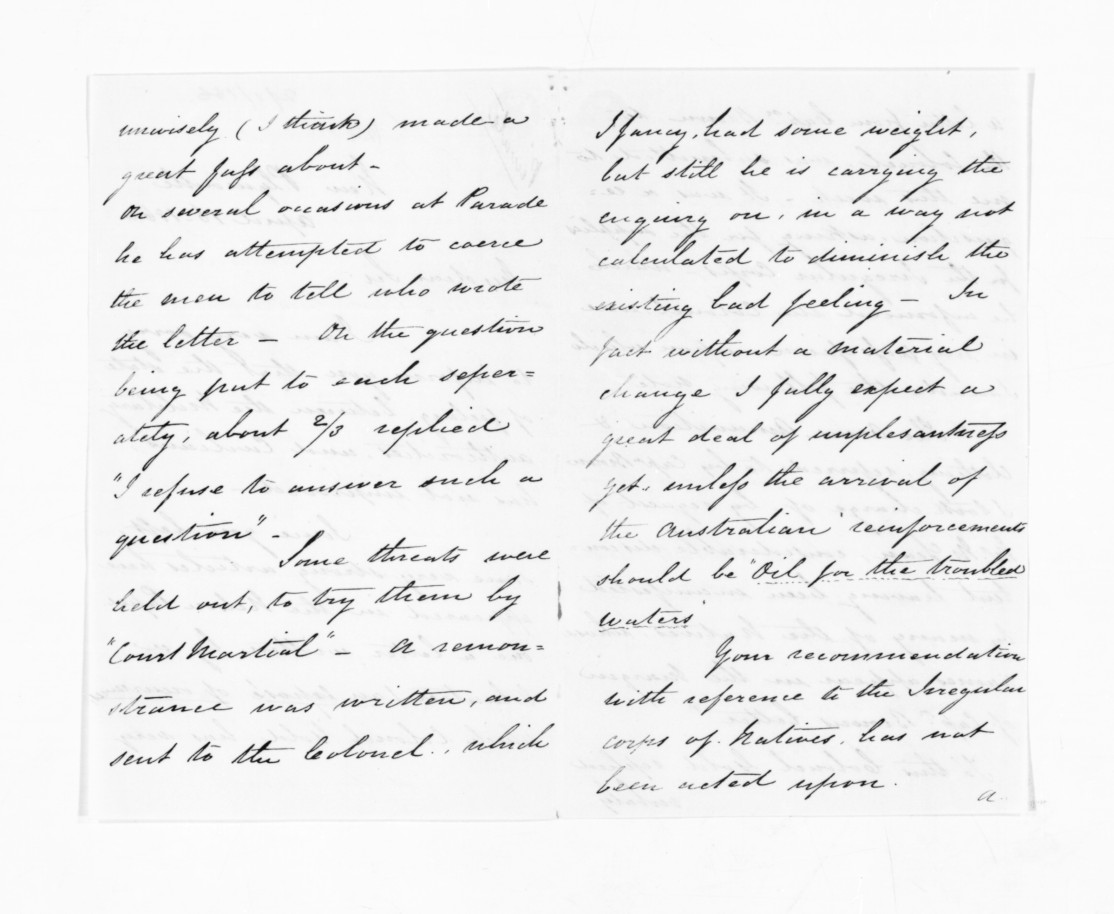 unwisely (I think) made a
great fuss about -
On several occasions at Parade
he has attempted to coerce
the men to tell who wrote
the letter - On the question
being put to each seper=
ately, about 2/3 replied
"I refuse to answer such a
question" -
Some threats were
held out, to try them by
"Court Martial" - A remon=
strance was written, and
sent to the Colonel., which
I fancy, had some weight,
but still he is carrying the
enquiry on, in a way not
calculated to diminish the
existing bad feeling - In
fact without a material
change I fully expect a
great deal of unplesantness
yet. unless the arrival of
the Australian reinforcements
should be "Oil for the troubled
waters"
Your recommendation
with reference to the Irregular
corps of Natives, has not
been acted upon.
a